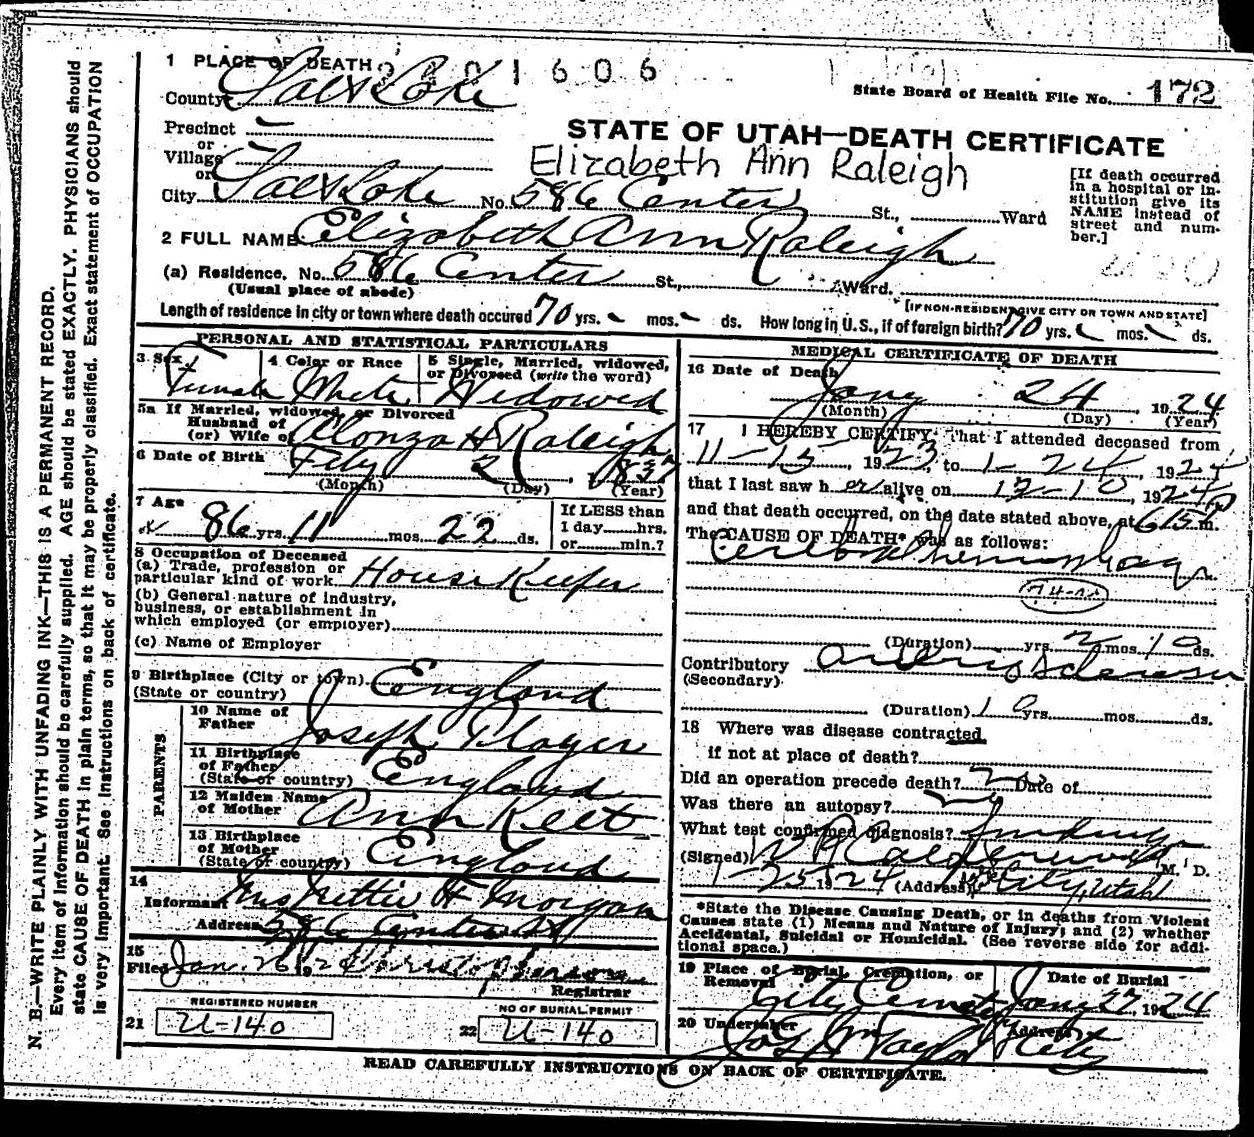 N. B.—WRITE PLAINLY WITH UNFADING INK—THIS IS A PERMANENT RECORD.
Every item of information should be carefully supplied. AGE should be stated EXACTLY. PHYSICIANS should
state CAUSE OF DEATH in plain terms, so that it may be properly classified. Exact statement of OCCUPATION
is very important. See instructions on back of certificate.
1 PLACE OF DEATH
1606
County Salt Lake
State Board of Health File No. 172
Precinct
or
Village
or
STATE OF UTAH—DEATH CERTIFICATE
Elizabeth Ann Raleigh
City Salt Lake No. 586 Center St., Ward
[If death occurred
in a hospital or in-
stitution give its
NAME instead of
street and num-
ber.]
2 FULL NAME Elizabeth Ann Raleigh
(a) Residence. No. 586 Center St., Ward.
(Usual place of abode)
[IF NON-RESIDENT GIVE CITY OR TOWN AND STATE]
Length of residence in city or town where death occured 70 yrs. mos. ds. How long in U.S., if of foreign birth? 70 yrs. mos. ds.
PERSONAL AND STATISTICAL PARTICULARS
3 Sex
Female
4 Color or Race
White
5 Single, Married, widowed,
or Divorced (write the word)
Widowed
5a If Married, widowed, or Divorced
Husband of
(or) Wife of Alonzo H Raleigh
6 Date of Birth Feby 2 1837
(Month) (Day) (Year)
7 Age
86 yrs. 11 mos. 22 ds.
If LESS than
1 day hrs.
or min.?
8 Occupation of Deceased
(a) Trade, profession or
particular kind of work House Keeper
(b) General nature of industry,
business, or establishment in
which employed (or employer)
(c) Name of Employer
9 Birthplace (City or town)
(State or country) England
PARENTS
10 Name of
Father Joseph Player
11 Birthplace
of Father
(State or country) England
12 Maiden Name
of Mother Ann Keet
13 Birthplace
of Mother
(State or country) England
14
Informant Mrs Nettie H Morgan
Address 586 Center St
15
Filed Jan. 26 192
Registrar
REGISTERED NUMBER
21 U-140
NO OF BURIAL PERMIT
22 U-140
MEDICAL CERTIFICATE OF DEATH
16 Date of Death
Jany 24, 1924
(Month) (Day) (Year)
17 I HEREBY CERTIFY, That I attended deceased from
11-15, 1923, to 1-24, 1924
that I last saw her alive on 12-10, 1924
and that death occurred, on the date stated above, at 615 m.
The CAUSE OF DEATH* was as follows:
Cerebral hemorrhage
74-a
(Duration) yrs. 2 mos. 10 ds.
Contributory Arterio Sclerosis
(Secondary)
(Duration) 10 yrs. mos. ds.
18 Where was disease contracted
if not at place of death?
Did an operation precede death? no Date of
Was there an autopsy? no
What test confirmed diagnosis? findings
(Signed) M. D.
1-25 1924 (Address) City, Utah
*State the Disease Causing Death, or in deaths from Violent
Causes state (1) Means and Nature of Injury; and (2) whether
Accidental, Suicidal or Homicidal. (See reverse side for addi-
tional space.)
19 Place of Burial, Cremation, or
Removal
City Cemetery
Date of Burial
Jany 27, 1924
20 Undertaker
Jos Wm Taylor
Address
City
READ CAREFULLY INSTRUCTIONS ON BACK OF CERTIFICATE.